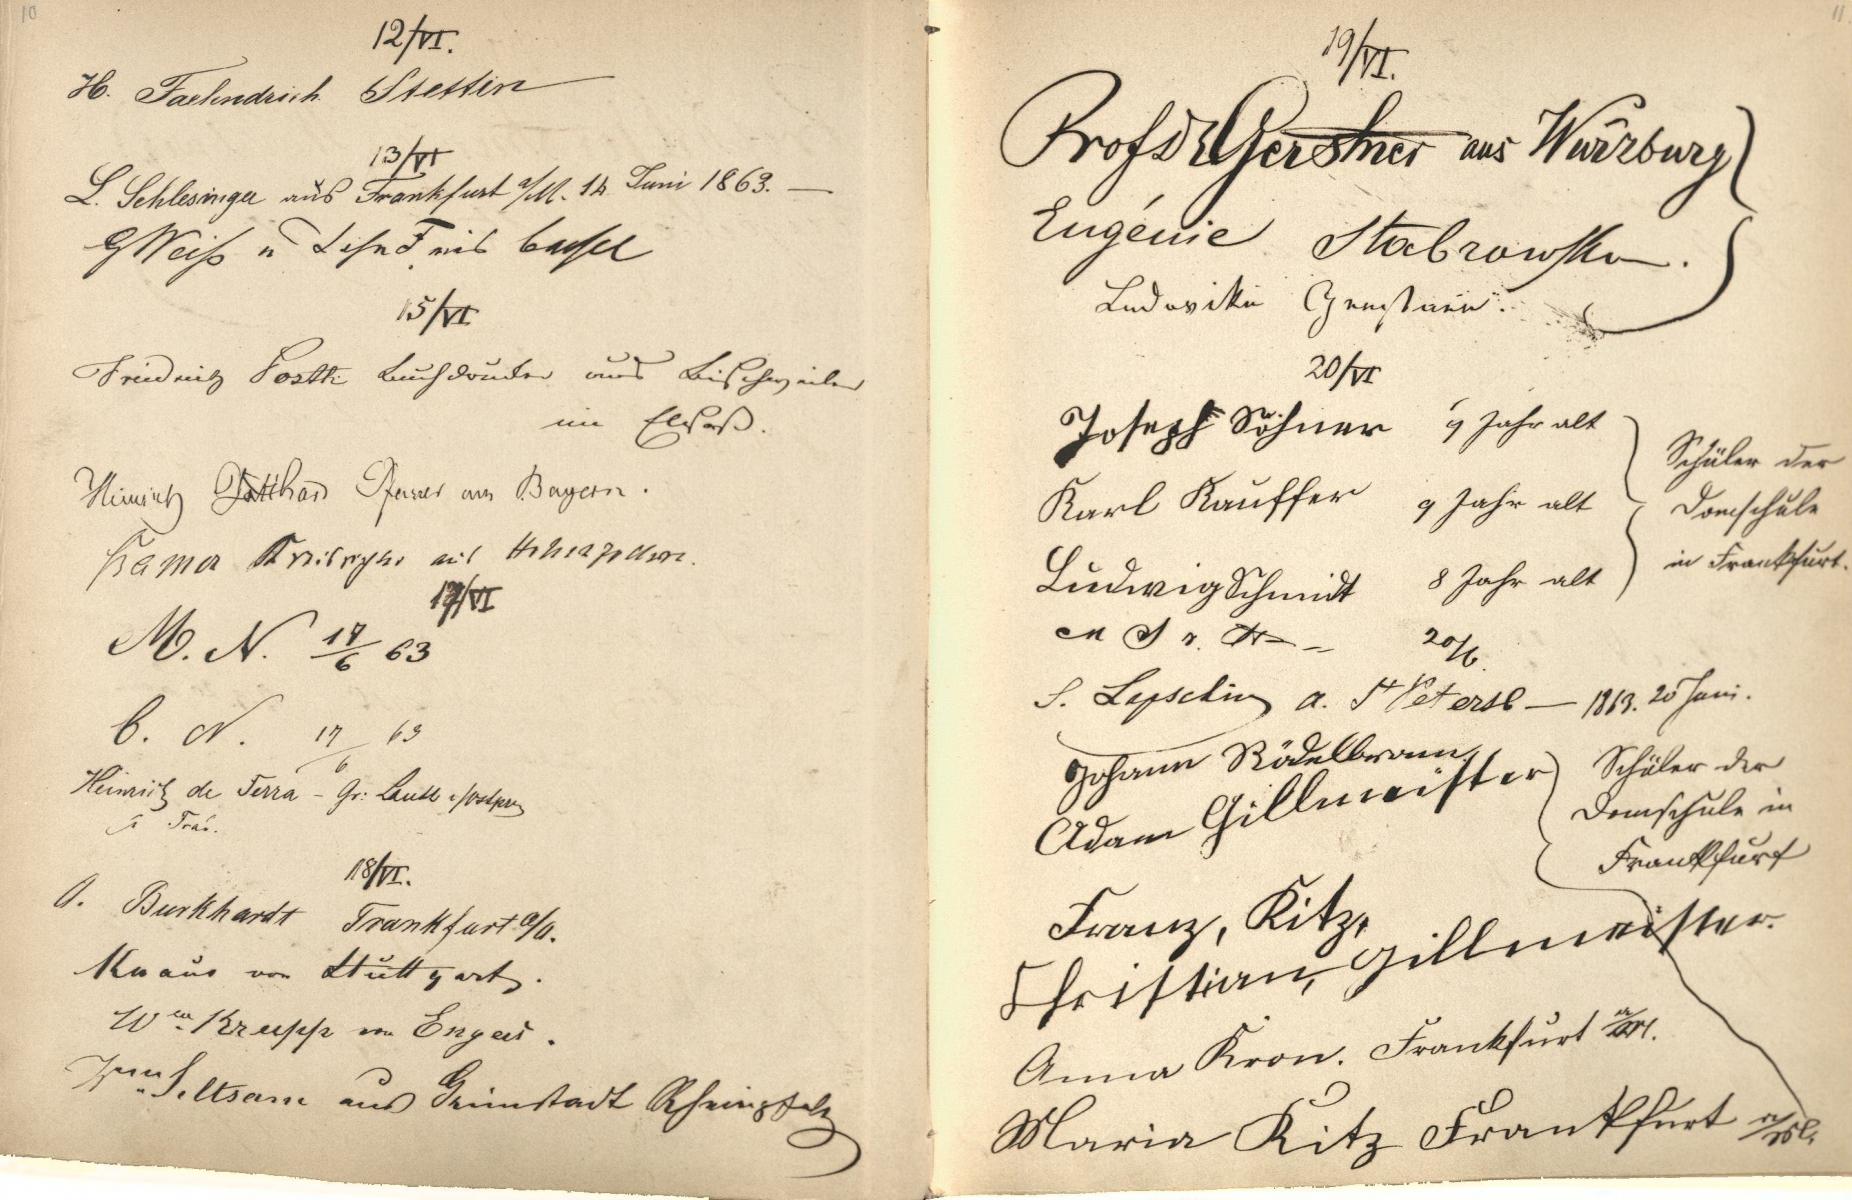 10
12/VI.
H. Faehndrich Stettin
13/VI
L. Schlesinger aus Frankfurt a/M. 14 Juni 1863. —
G Weiß u
15/VI
Friedrich Buchdrucker aus Bischweiler
im Elsaß.
Heinrich Pfarrer aus Bayern.
aus
17/VI
M. N. 17/6 63
C. N. 17/6 63
Heinrich de Terra – Gr:
& Frau.
18/VI.
A. Burkhardt Frankfurt a/M.
Knaus von Stuttgart.
Wm Krupp von Engers.
Seltsam aus Grünstadt Rheinpfalz
11
19/VI.
Prof Dr Gerstner aus Würzburg
Eugénie Stabrowska.
Ludovika
20/VI
Joseph Söhner 9 Jahr alt
Karl Kauffer 9 Jahr alt
Ludwig Schmidt 8 Jahr alt
Schüler der
Domschule
in Frankfurt.
20/6.
S. a. St Petersb — 1863. 20 Juni.
Johann Rödelbronn.
Adam Gillmeister
Schüler der
Domschule in
Frankfurt
Franz, Kitz,
Christian, Gillmeister.
Anna Kron. Frankfurt a/M.
Maria Kitz Frankfurt a/M.